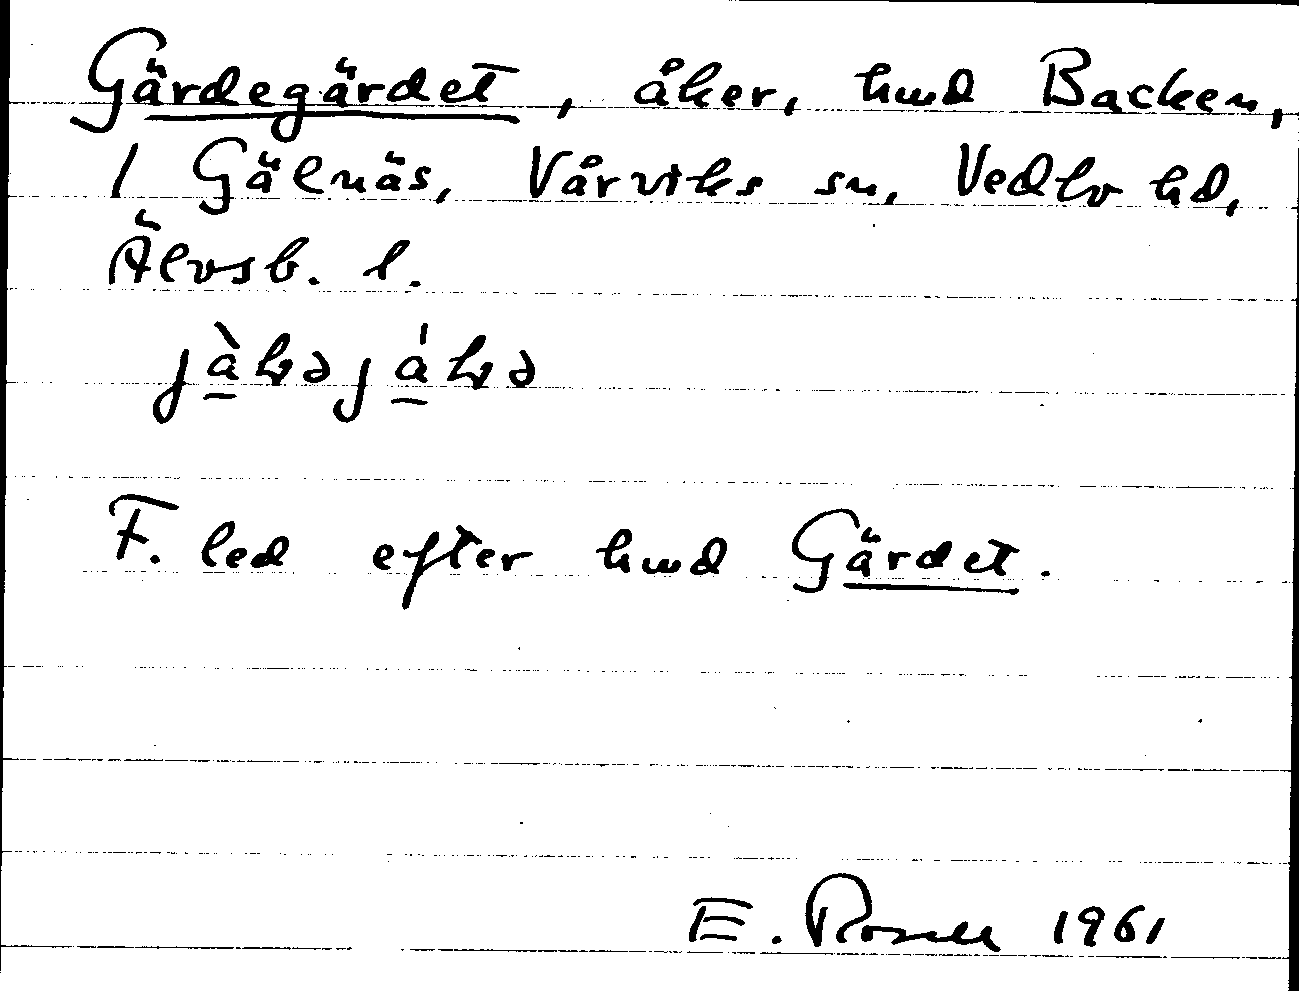 Gärdegärdet, åker, hmd Backen,
1 Gälnäs, Vårviks sn, Vedbo hd,
Älvsb. l.
F. led efter hmd Gärdet.
E. Rosell 1961